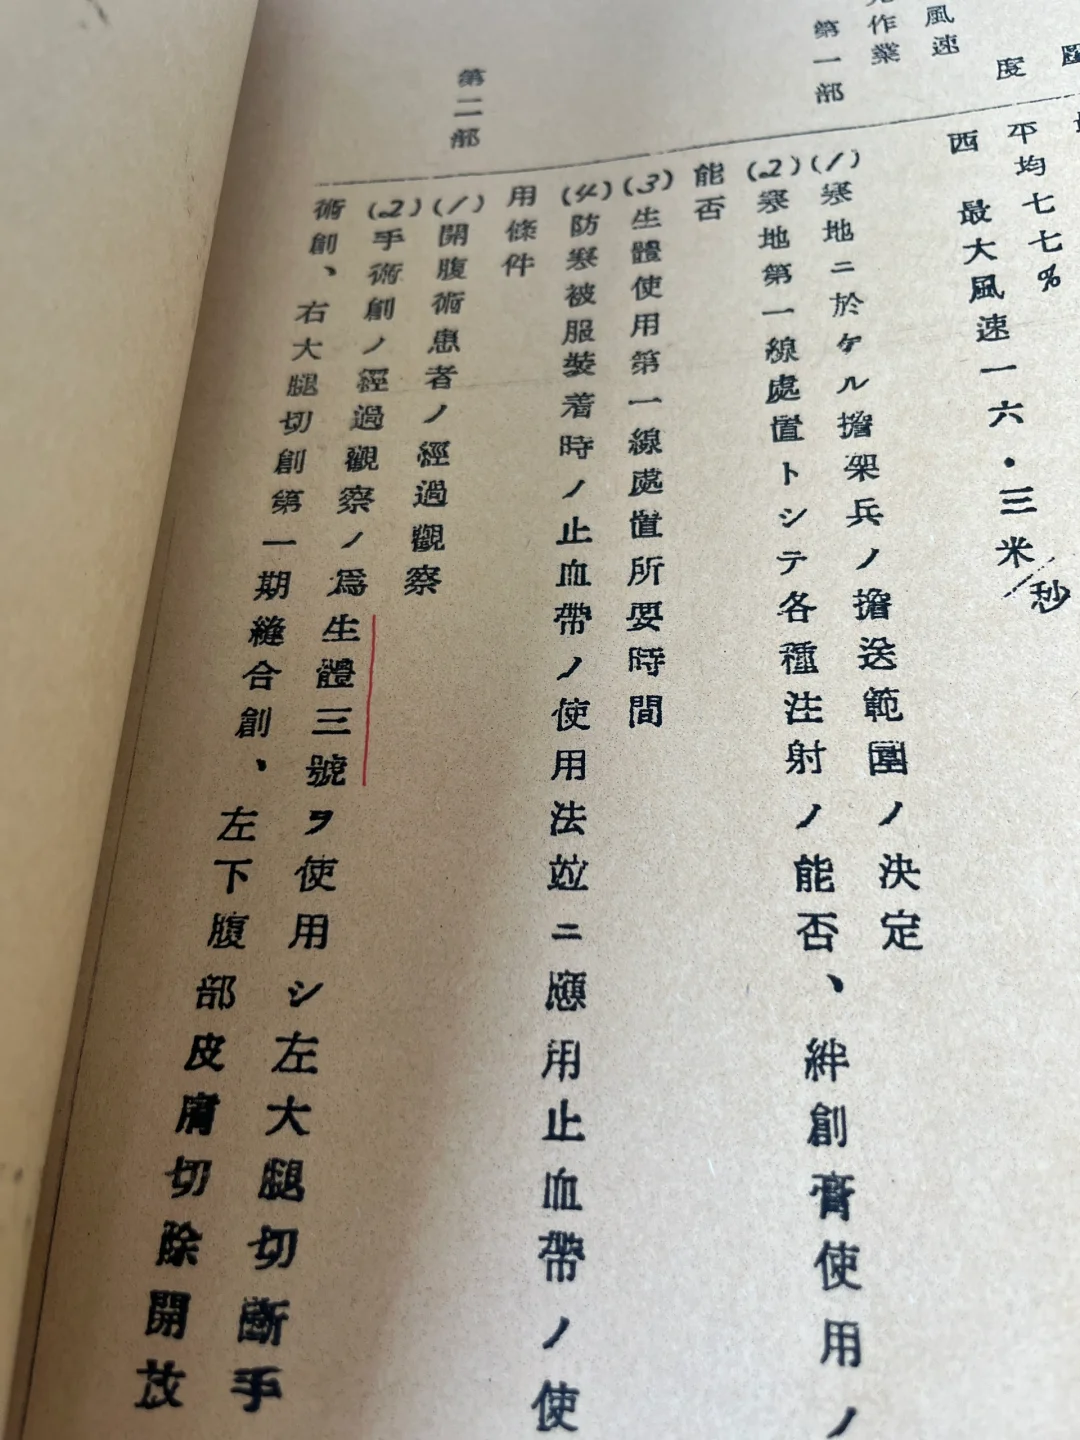 度
平均七七%
風速
西　最大風速一六・三米/秒
作業
第一部
(1)寒地ニ於ケル擔架兵ノ擔送範圍ノ決定
(2)寒地第一線處置トシテ各種注射ノ能否、絆創膏使用ノ
能否
(3)生體使用第一線處置所要時間
(4)防寒被服裝着時ノ止血帶ノ使用法竝ニ應用止血帶ノ使
用條件
第二部
(1)開腹術患者ノ經過觀察
(2)手術創ノ經過觀察ノ爲生體三號ヲ使用シ左大腿切斷手
術創、右大腿切創第一期縫合創、左下腹部皮膚切除開放